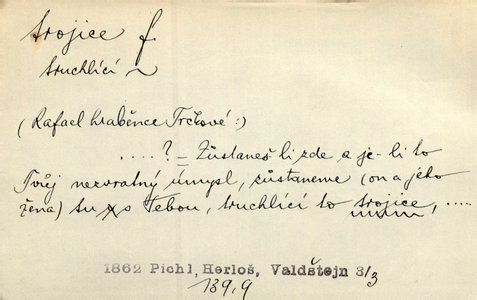 trojice f.
truchlící ~
(Rafael hraběnce Trčkové:)
....? = Zůstaneš li zde a je-li to
Tvůj nezvratný úmysl, zůstaneme (on a jeho
žena) tu s Tebou, truchlící to trojice, ....
1862 Pichl, Herloš, Valdštejn 3/3
139,9